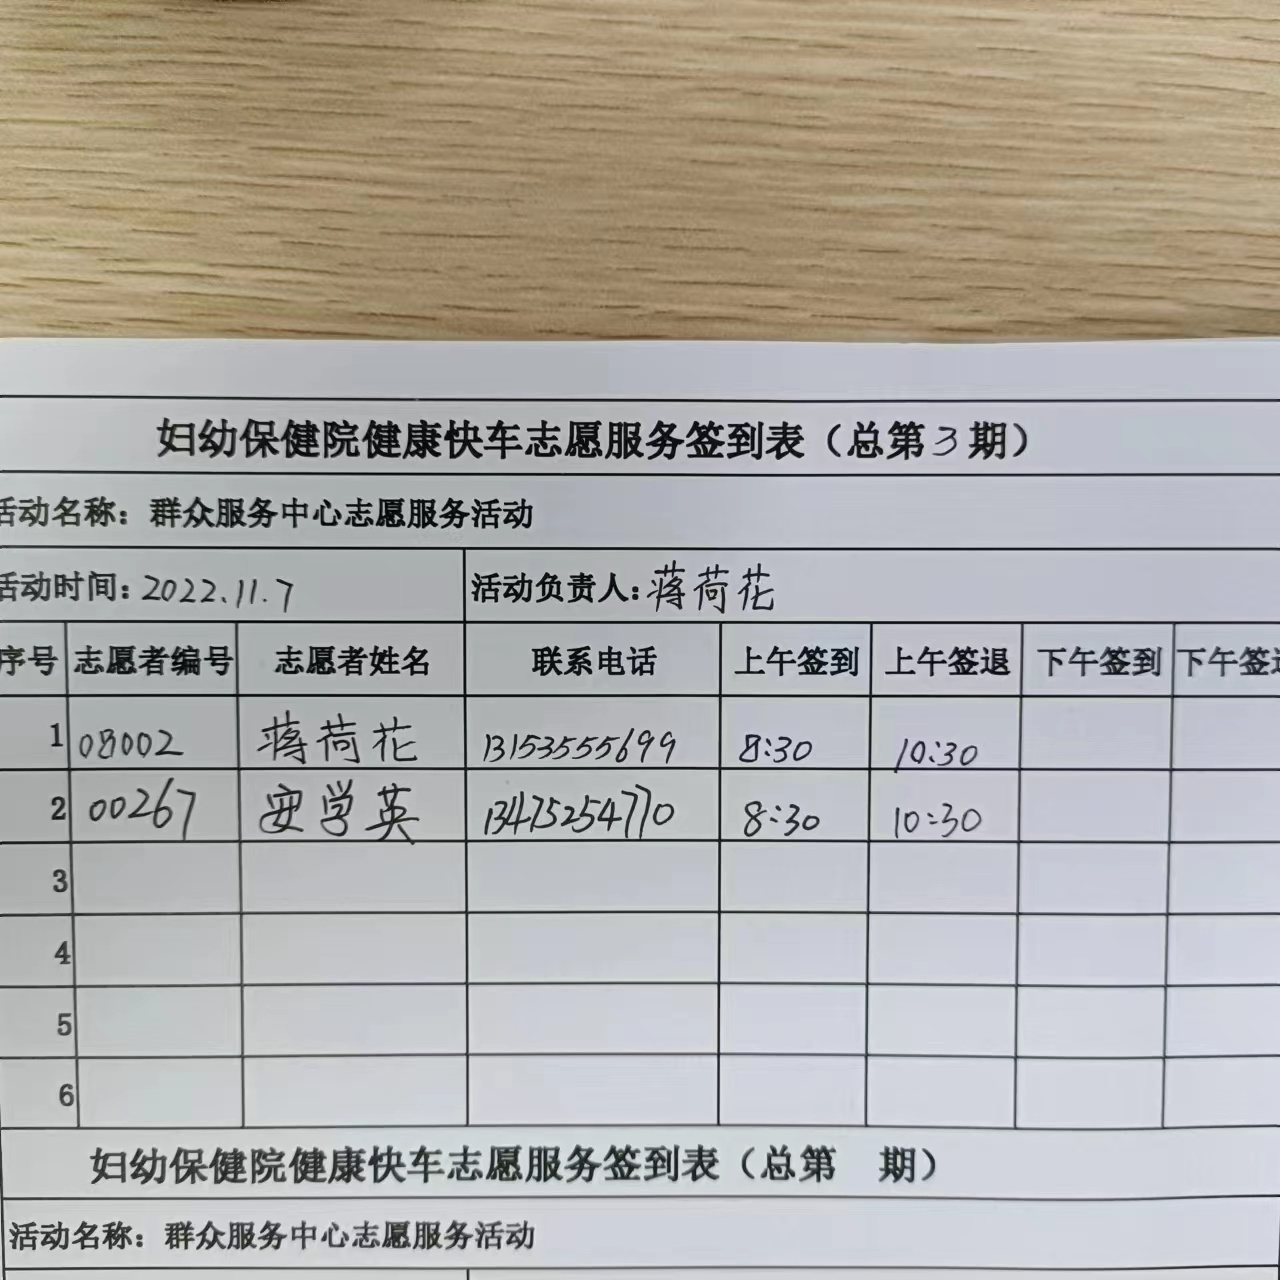 妇幼保健院健康快车志愿服务签到表（总第3期）
活动名称：群众服务中心志愿服务活动
活动时间：2022.11.7 活动负责人：蒋荷花
序号 志愿者编号 志愿者姓名 联系电话 上午签到 上午签退 下午签到 下午签退
1 08002 蒋荷花 13153555699 8:30 10:30
2 00267 安学英 13475254770 8:30 10:30
3
4
5
6
妇幼保健院健康快车志愿服务签到表（总第 期）
活动名称：群众服务中心志愿服务活动